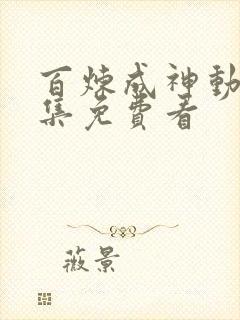 百炼成神动
集免费看
薇景